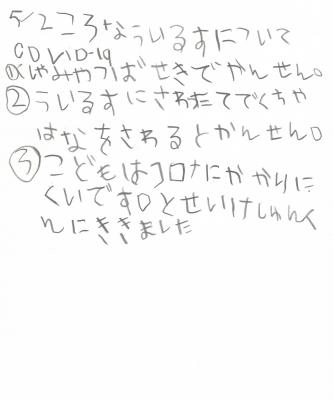 5/2ころなういるすについて
COVID-19
①くしゃみやつばせきでかんせん。
②ういるすにさわたてでくちや
はなをさわるとかんせん。
③こどもはコロナにかかりに
くいです。とせいりけしゅんく
んにききました